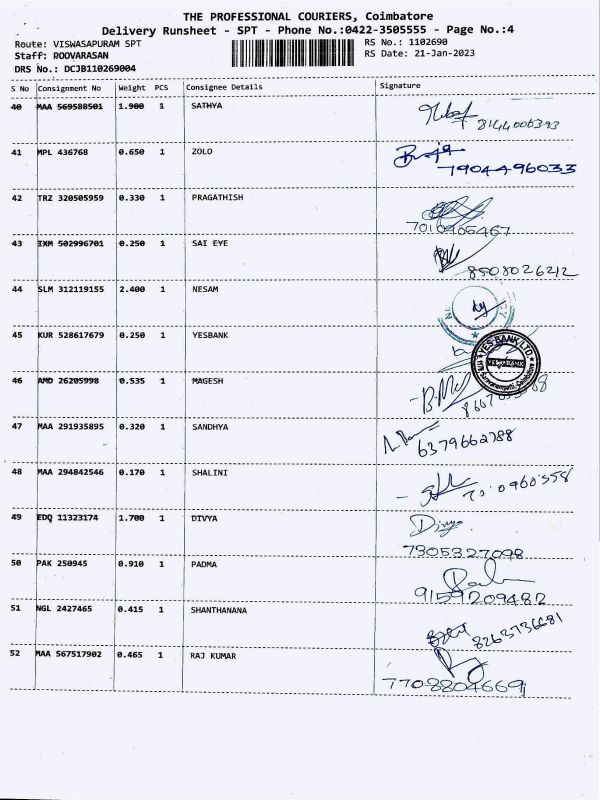 THE PROFESSIONAL COURIERS, Coimbatore
Delivery Runsheet - SPT - Phone No.:0422-3505555 - Page No.:4
Route: VISWASAPURAM SPT
RS No.: 1102690
Staff: BOOVARASAN
RS Date: 21-Jan-2023
DRS No.: DCJB110269004
S No Consignment No Weight PCS Consignee Details Signature
40 MAA 569588501 1.900 1 SATHYA
8144006393
41 MPL 436768 0.650 1 ZOLO
7904496033
42 TRZ 320505959 0.330 1 PRAGATHISH
43 IXM 502996701 0.250 1 SAI EYE
8508026212
44 SLM 312119155 2.400 1 NESAM
45 KUR 528617679 0.250 1 YESBANK
YES BANK LTD
46 AMD 26205998 0.535 1 MAGESH
47 MAA 291935895 0.320 1 SANDHYA
6379662788
48 MAA 294842546 0.170 1 SHALINI
49 EDQ 11323174 1.700 1 DIVYA
Divya
7305327098
50 PAK 250945 0.910 1 PADMA
9159209482
51 NGL 2427465 0.415 1 SHANTHANANA
8263736681
52 MAA 567517902 0.465 1 RAJ KUMAR
7708804669